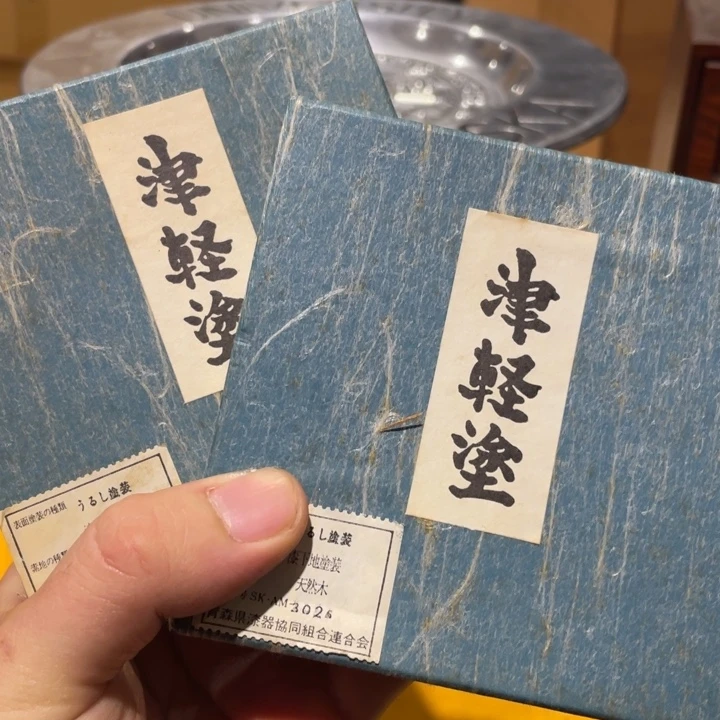 津軽塗
津軽塗
表面塗装の種類 うるし塗装
素地の種類
るし塗装
下地塗装
天然木
SK-AM3026
青森県漆器協同組合連合会